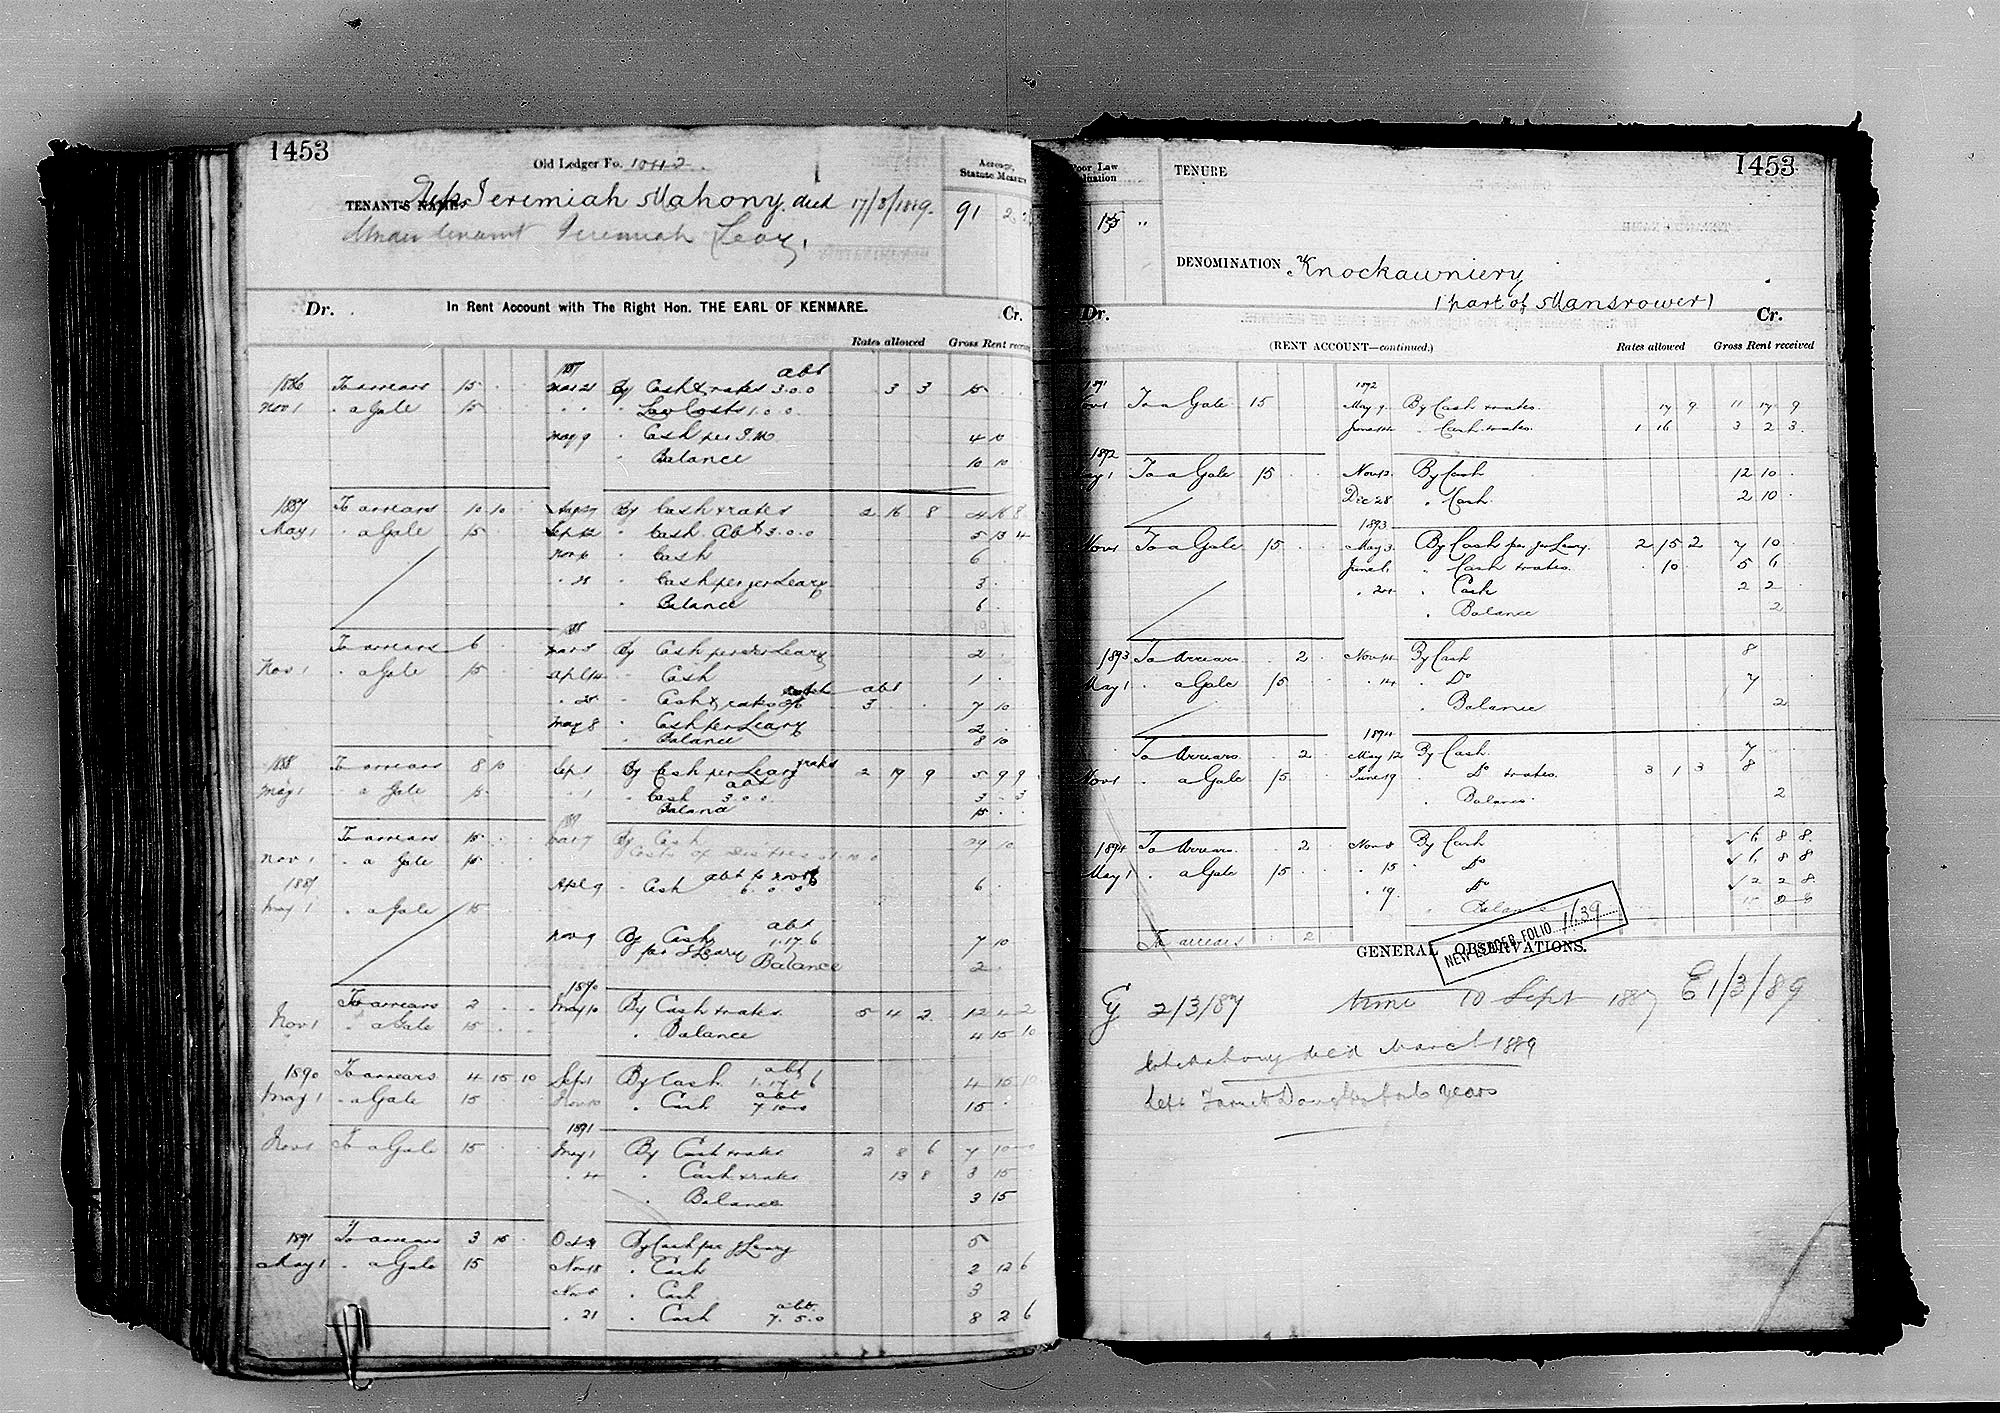 1453
Old Ledger Fo. 1042
Acreage, Statute Measure
TENANT'S NAME Reps Jeremiah Mahony. died 17/3/1889. 91
Under tenant Jeremiah Leary,
Dr. In Rent Account with The Right Hon. THE EARL OF KENMARE. Cr.
Rates allowed Gross Rent received
1887 abt
1886 To arrears 15 Mar 21 By Cash & rates 3.0.0 3 3 15
Nov 1 " a Gale 15 " " " Law Costs 1.0.0
May 9 " Cash per J.M 4 10
" Balance 10 10
1887 To arrears 10 10 By Cash & rates 2 16 8 4 16 8
May 1 " a Gale 15 Sep 12 " Cash Abt 3.0.0 5 13 4
Nov " Cash 6
" 28 " Cash per Jer Leary 3
" Balance 6
1888
To arrears 6 Mar 5 By Cash per Jer Leary 2
Nov 1 " a Gale 15 Apl 14 " Cash 1
" 28 " Cash & rates abt 3 7 10
May 8 " Cash per Leary 2
" Balance 8 10
1888 To arrears 8 10 Sep 1 By Cash per Leary & rates 2 19 9 5 9 9
abt
May 1 " a Gale 15 " 1 " Cash 3.0.0 3 " 3
Balance 15
1889
To arrears 15 Mar 7 By Cash 29 10
Nov 1 " a Gale 15 Costs of Distress
1889 Apl 9 " Cash abt to Nov 6.0.0 6
May 1 " a Gale 15
abt
Nov 9 By Cash 1.17.6 7 10
per J Leary
Balance 2
1890
To arrears 2 May 10 By Cash & rates 5 4 2 12 4 2
Nov 1 " a Gale 15 " Balance 4 15 10
1890 To arrears 4 15 10 Sep 1 By Cash abt 1.17.6 4 15 10
May 1 " a Gale 15 Nov 10 " Cash abt 7.10.0 15
1891
Nov 1 To a Gale 15 May 1 By Cash & rates 2 8 6 7 10
" 4 " Cash & rates 13 8 3 15
" Balance 3 15
1891 To arrears 3 15 Oct 31 By Cash per J Leary 5
May 1 " a Gale 15 Nov 18 " Cash 2 12 6
Nov " Cash 3
" 21 " Cash abt. 7.5.0 8 2 6
1453
Poor Law Valuation
TENURE
15 "
DENOMINATION Knockawniery
(part of Mansrower)
Dr. Cr.
(RENT ACCOUNT—continued.) Rates allowed Gross Rent received
1891 1892
Nov 1 To a Gale 15 May 9 By Cash & rates. 17 9 11 17 9
June 14 " Cash & rates. 1 16 3 2 3
1892
May 1 To a Gale 15 Nov 12 By Cash 12 10
Dec 28 " Cash 2 10
1893
Nov 1 To a Gale 15 May 3 By Cash per Jer Leary. 2 15 2 7 10
June 1 " Cash & rates. 10 5 6
" 24 " Cash 2 2
" Balance 2
1893 To Arrears 2 Nov 14 By Cash 8
May 1 " a Gale 15 " 14 " Do 7
" Balance 2
1894
To Arrears 2 May 12 By Cash 7
Nov 1 " a Gale 15 June 19 " Do & rates. 3 1 3 8
" Balance 2
1894 To Arrears 2 Nov 8 By Cash 6 8 8
May 1 " a Gale 15 " 15 " Do 6 8 8
" 19 " Do 2 2 8
" Balance
To arrears 2
GENERAL OBSERVATIONS.
NEW LEDGER FOLIO 1139
Ey 2/3/87 time to Sept 1887 E 1/3/89
Mahony died March 1889
left years